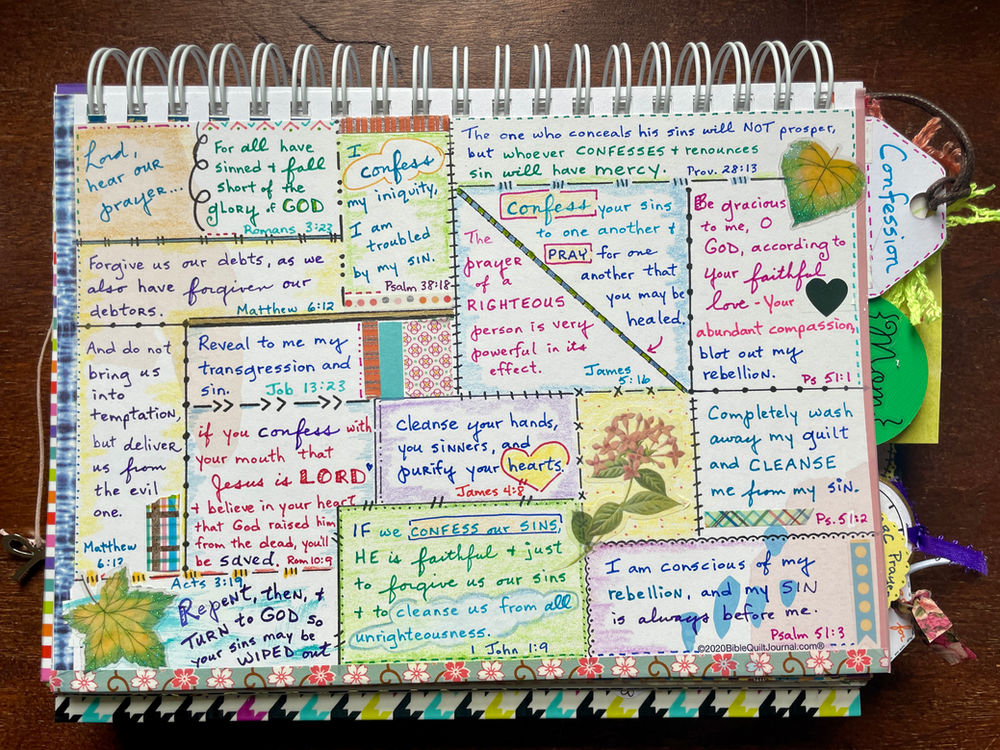 Lord,
hear our
prayer...
For all have
sinned + fall
short of the
glory of GOD
Romans 3:23
I
confess
my iniquity,
I am
troubled
by my sin.
Psalm 38:18
The one who conceals his sins will NOT prosper,
but whoever CONFESSES + renounces
sin will have mercy. Prov. 28:13
Forgive us our debts, as we
also have forgiven our
debtors.
Matthew 6:12
The
prayer
of a
RIGHTEOUS
person is very
powerful in its
effect.
Confess your sins
to one another +
PRAY for one
another that
you may be
healed.
James
5:16
Be gracious
to me, O
GOD, according to
your faithful
love - Your
abundant compassion,
blot out my
rebellion.
Ps 51:1
And do not
bring us
into
temptation,
but deliver
us from
the evil
one.
Matthew
6:13
Reveal to me my
transgression and
sin. Job 13:23
if you confess with
your mouth that
Jesus is LORD
+ believe in your heart
that God raised him
from the dead, you'll
be saved. Rom 10:9
Cleanse your hands,
you sinners, and
purify your hearts.
James 4:8
Completely wash
away my guilt
and CLEANSE
me from my sin.
Ps. 51:2
Acts 3:19
Repent, then, +
TURN to GOD so
your sins may be
WIPED out
IF we CONFESS our SINS,
HE is faithful + just
to forgive us our sins
+ to cleanse us from all
unrighteousness.
1 John 1:9
I am conscious of my
rebellion, and my SIN
is always before me.
Psalm 51:3
©2020BibleQuiltJournal.com®
Confession
Prayer
for